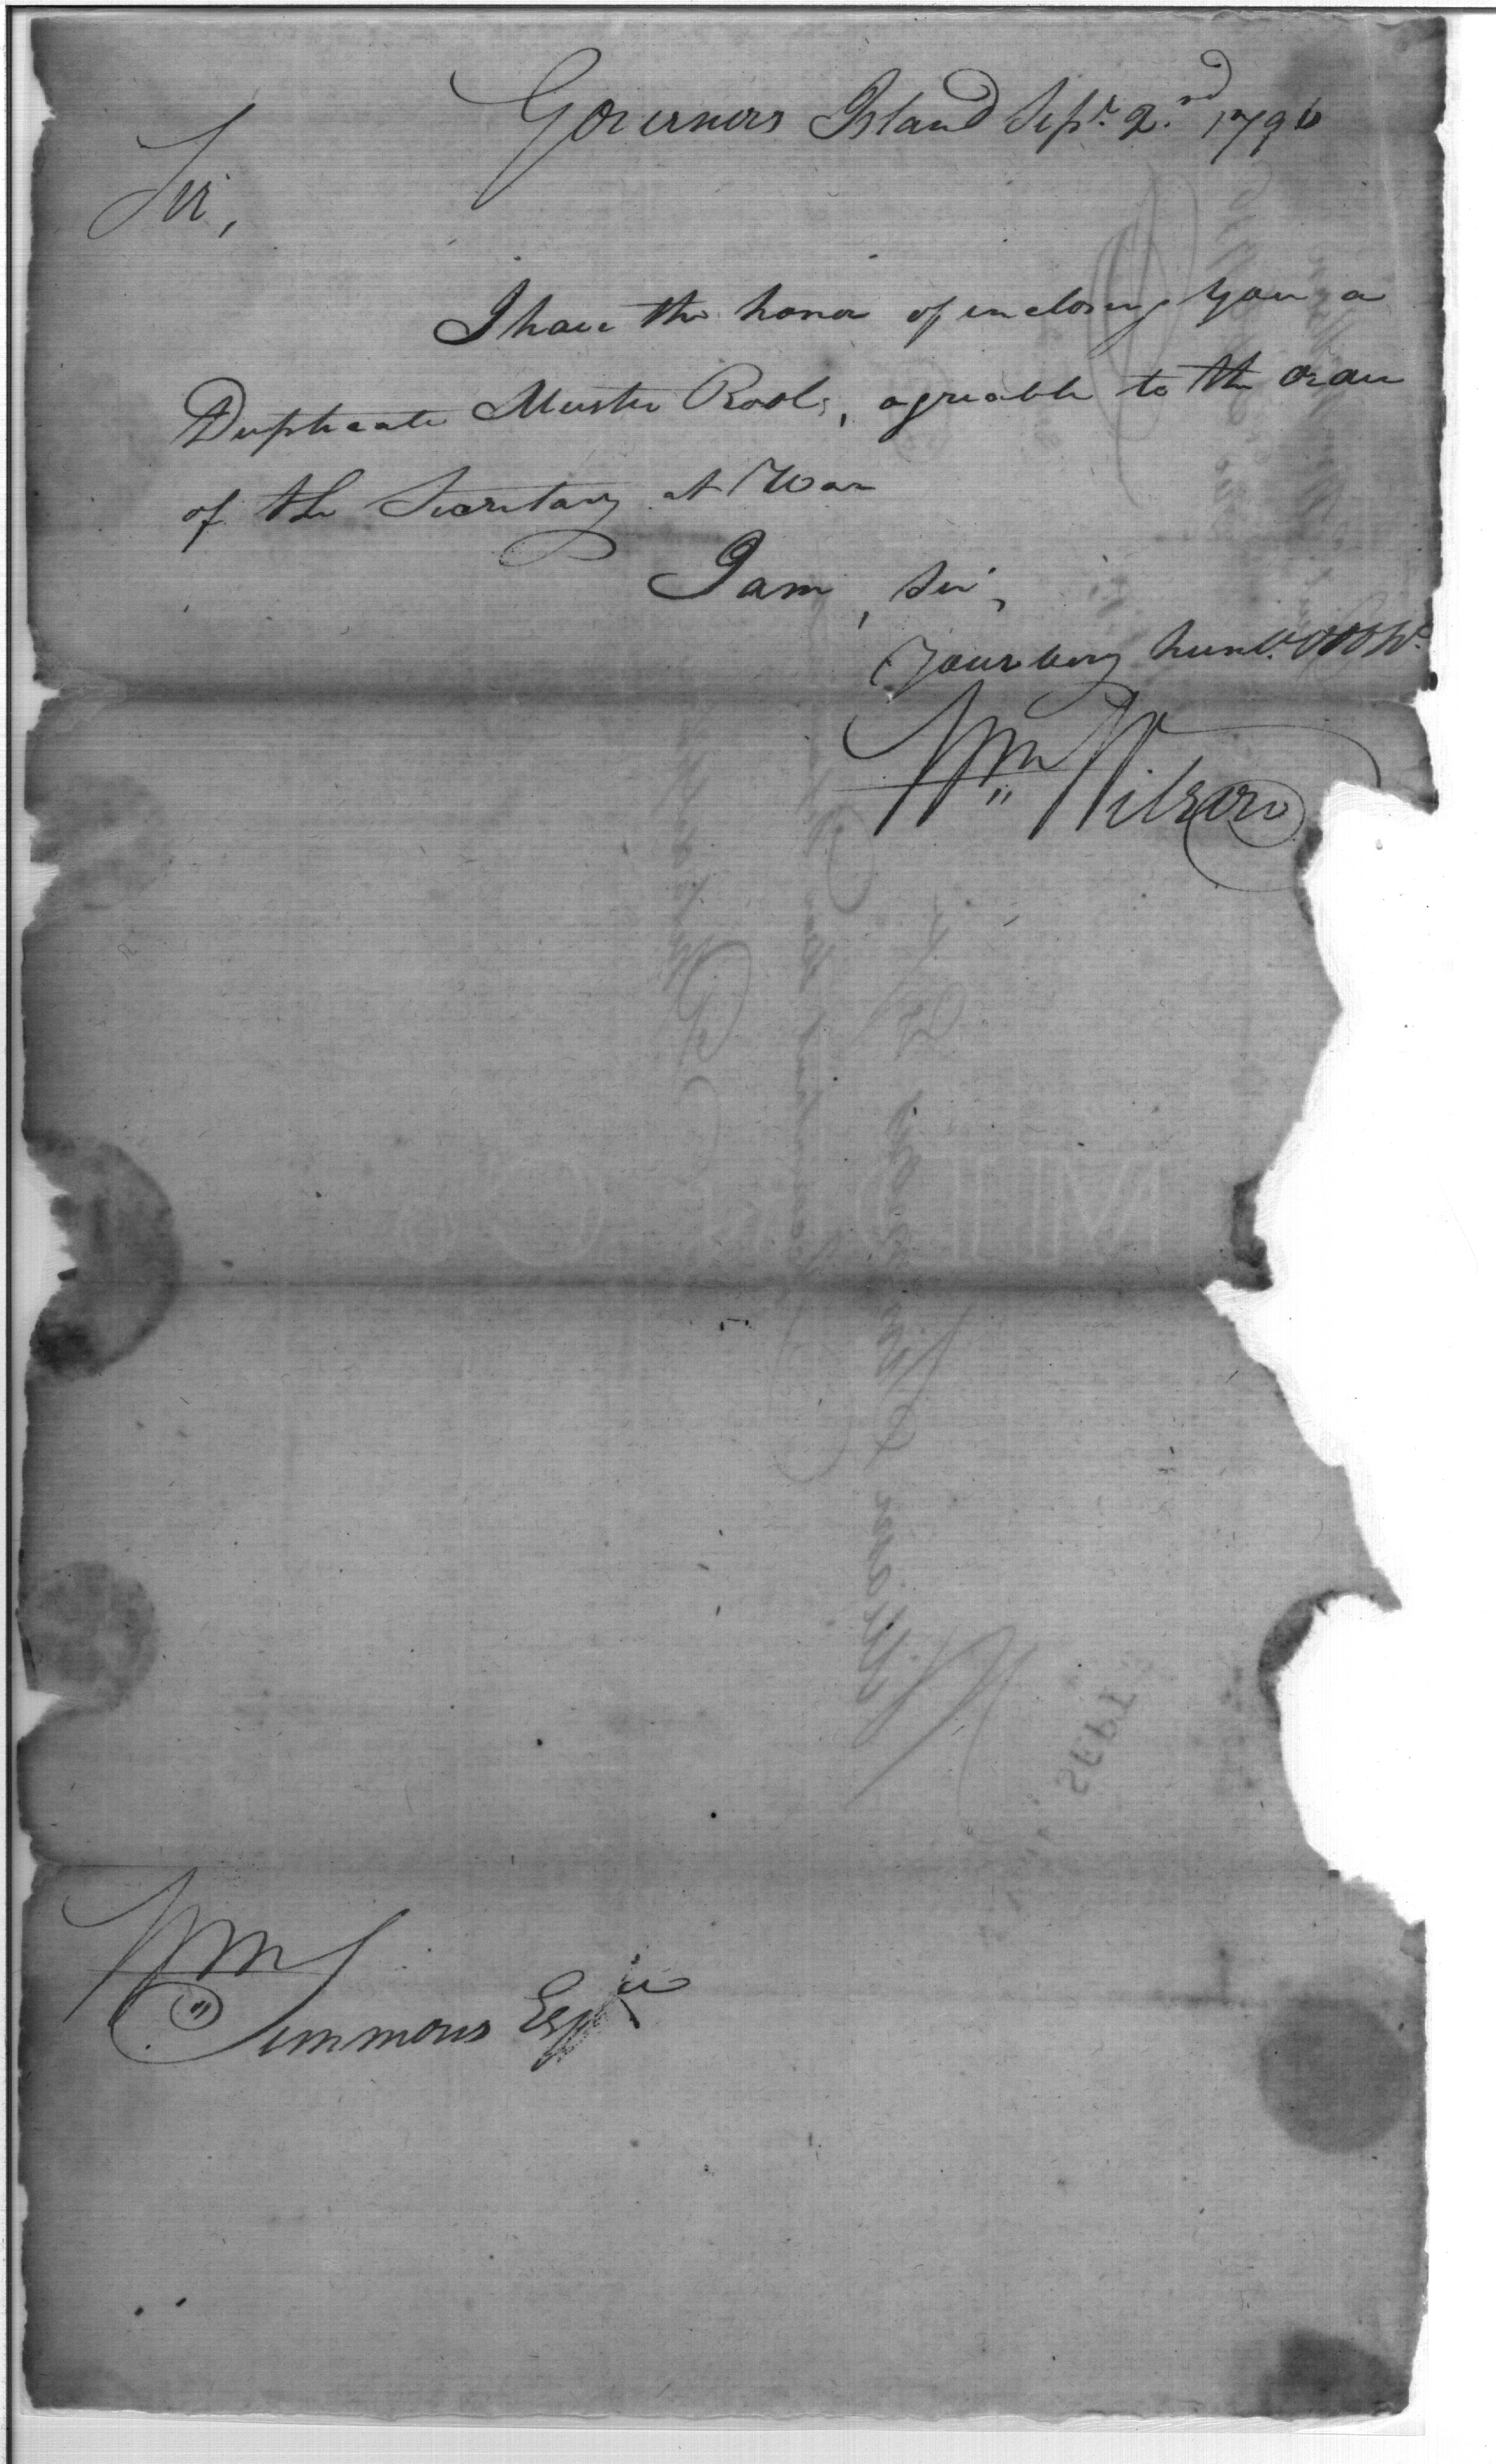 Governors Island Sept. 2.nd 1796
Sir,
I have the honor of inclosing you a
Duplicate Muster Rools, agreable to the order
of the Secretary at War
I am, Sir,
Your very humb. Obt. St.
Wm Wilson
Wm
Simmons Esqr